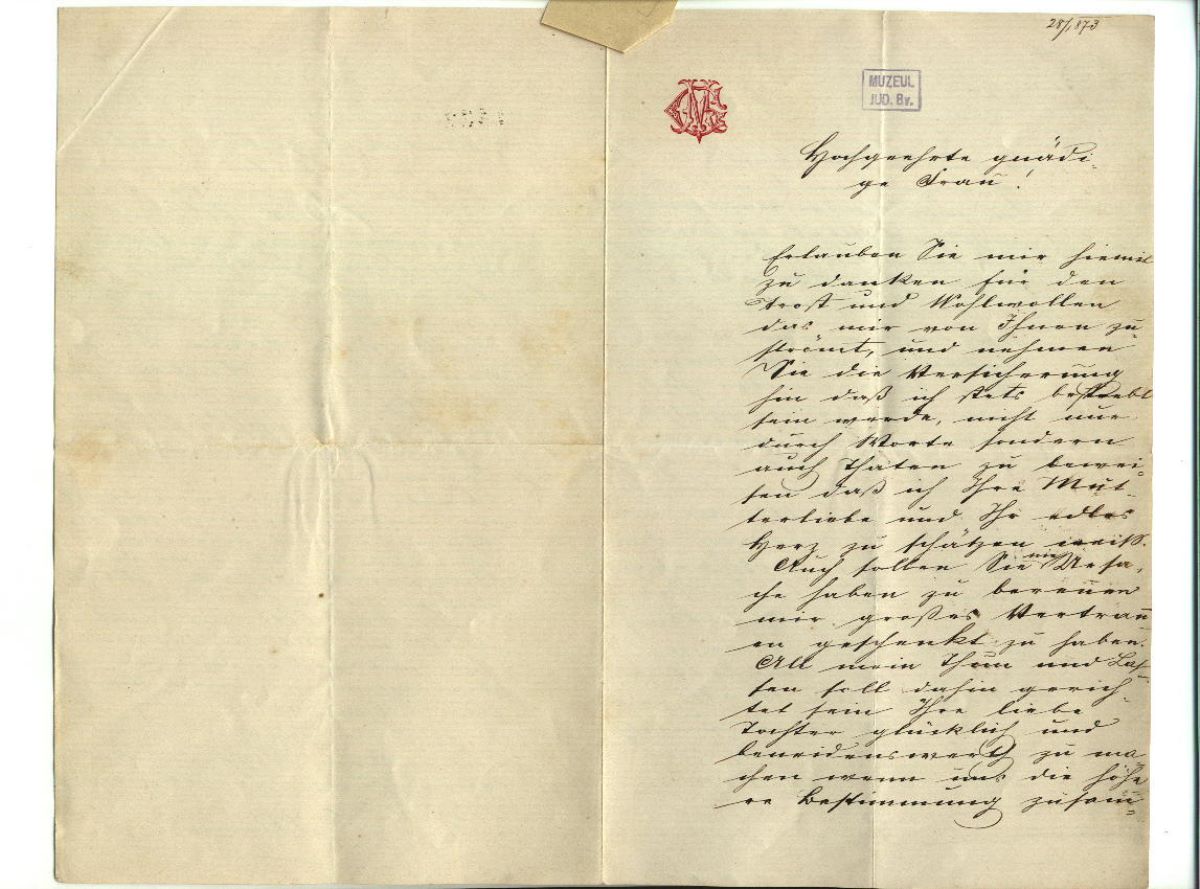 28/1 873
MUZEUL
JUD. Bv.
Hochgeehrte gnädi-
ge Frau!
Erlauben Sie mir hiemit
zu danken für den
Trost und Wohlwollen
das mir von Ihnen zu
strömt, und nehmen
Sie die Versicherung
hin daß ich stets bestrebt
sein werde, nicht nur
durch Worte sondern
auch Thaten zu bewei-
sen daß ich Ihre Mut-
terliebe und Ihr edles
Herz zu schätzen weiß.
Auch sollen Sie nie Ursa-
che haben zu bereuen
mir großes Vertrau
en geschenkt zu haben.
All mein Thun und Las-
sen soll dahin gerich-
tet sein Ihre liebe
Tochter glücklich und
beneidenswerth zu ma
chen wenn uns die höhe
re Bestimmung zusam̄